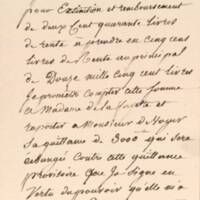 pour Extinction et remboursement
de deux Cent quarante livres
de rente a prendre en cinq cens
livres de Rente au principal
de Douze mille cinq cent livres
Je promets compter cette somme
a Madame de la
reporter a Monsieur de Voyer
sa quittance de 3000 qui sera
echangée contre cette quittance
provisoire que Je signe en
Vertu du pouvoir qu'elle m'a